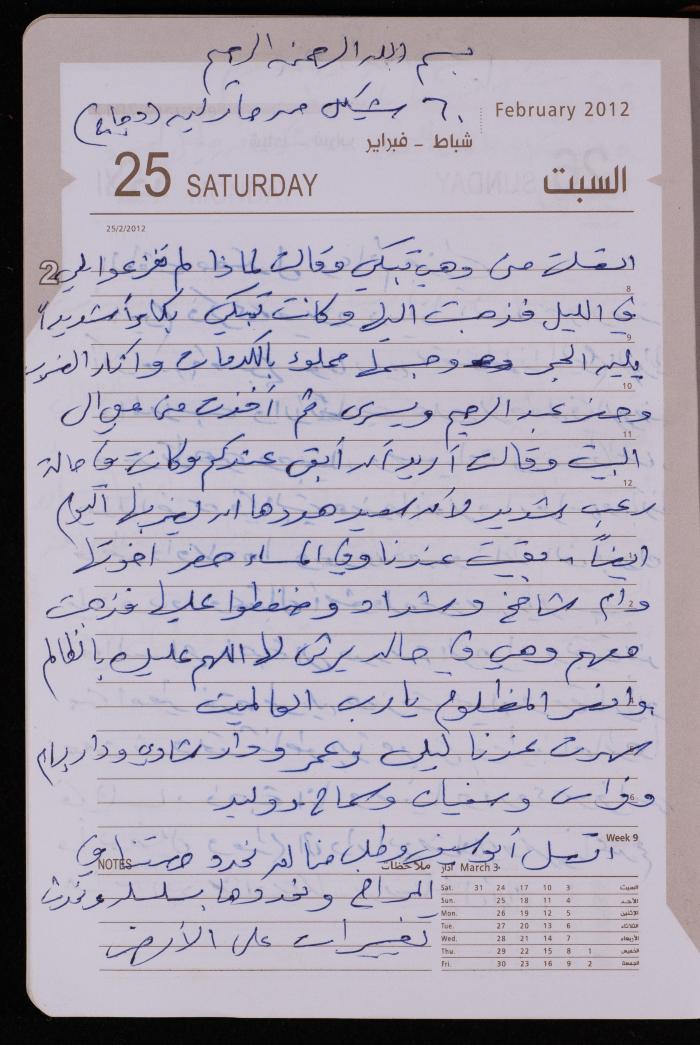 بسم الله الرحمن الرحيم
٦٠ شيكل من (دجاج)
February 2012
شباط - فبراير
25 SATURDAY
السبت
25/2/2012
اتصلت منى وهي تبكي وقالت لماذا لم تفزعوا لي
2
8
في الليل فذهبت اليها وكانت تبكي بكاءاً شديداً
9
يليه الحجر وجسمها مملوء بالكدمات واثار الضرب
10
وحضر عبد الرحيم ويسرى ثم أخذت منى الى
11
البيت وقالت أريد أن أبقى عندكم وكانت في حالة
12
رعب شديد لأن سعيد هددها ان يضربها اليوم
ايضاً. بقيت عندنا وفي المساء حضر اخوتها
وأم شامخ وشداد وضغطوا عليها فذهبت
معهم وهي في حالة يرثى لها اللهم عليك بالظالم
وانصر المظلوم يارب العالمين
سهرت عندنا ليلى وعمر ودار شادي ودار
وفراس وسفيان وسماح
6
اتصل أبو وطلب منا ان نحدد حصتنا في
Week 9
NOTES
ملاحظات
اذار March 3
المراح ونحددها بسلسلة
تغييرات على الأرض
Sat. 31 24 17 10 3 السبت
Sun. 25 18 11 4 الأحد
Mon. 26 19 12 5 الإثنين
Tue. 27 20 13 6 الثلاثاء
Wed. 28 21 14 7 الأربعاء
Thu. 29 22 15 8 1 الخميس
Fri. 30 23 16 9 2 الجمعة